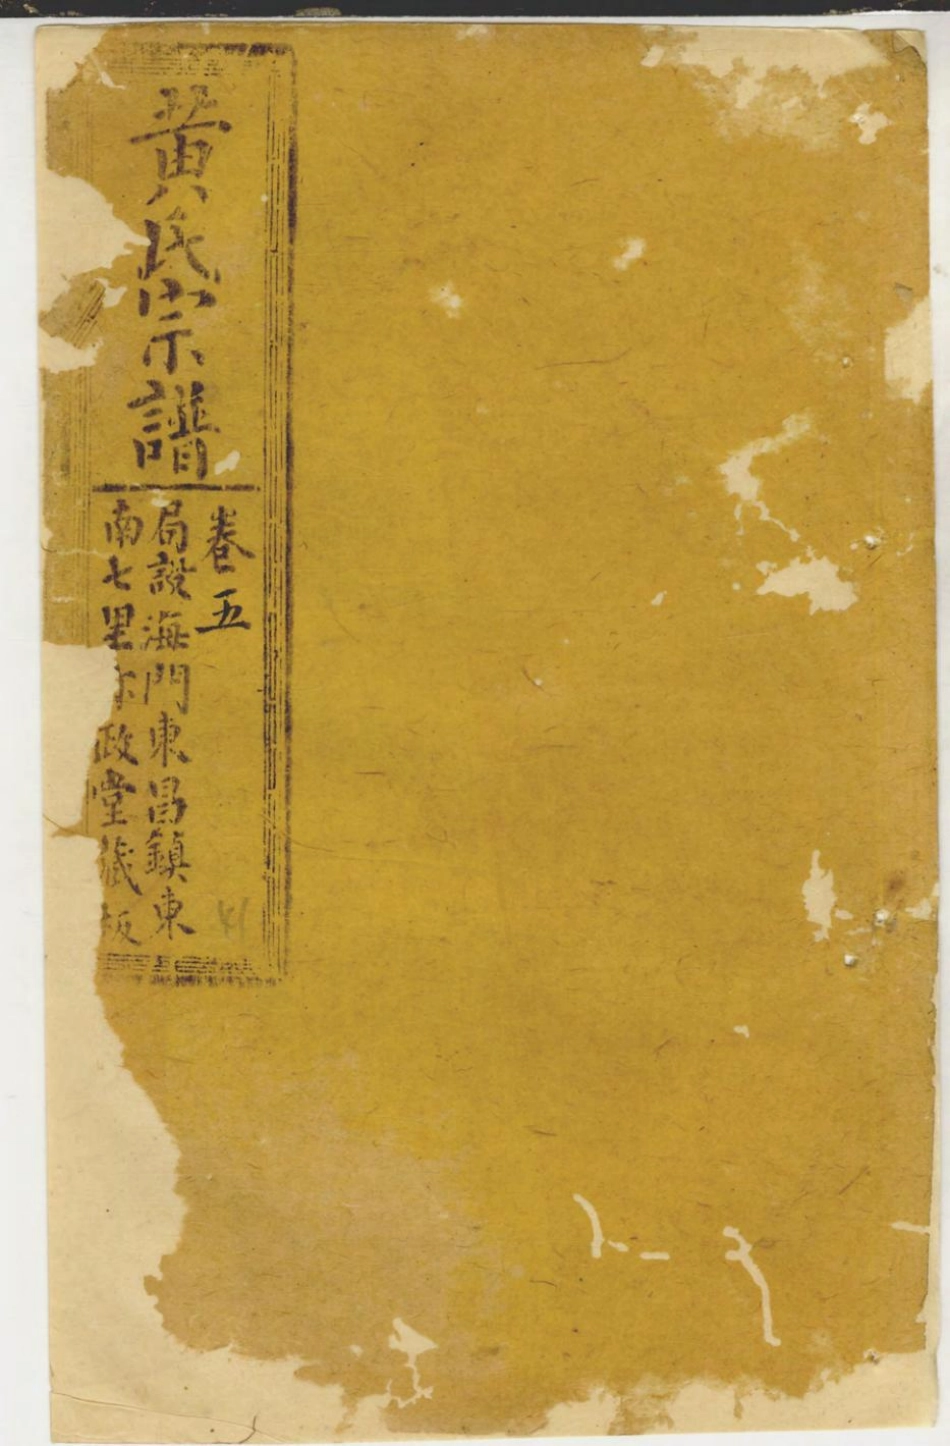 黄氏宗譜
卷五
局設海門東昌鎮東
南七里 政堂藏板